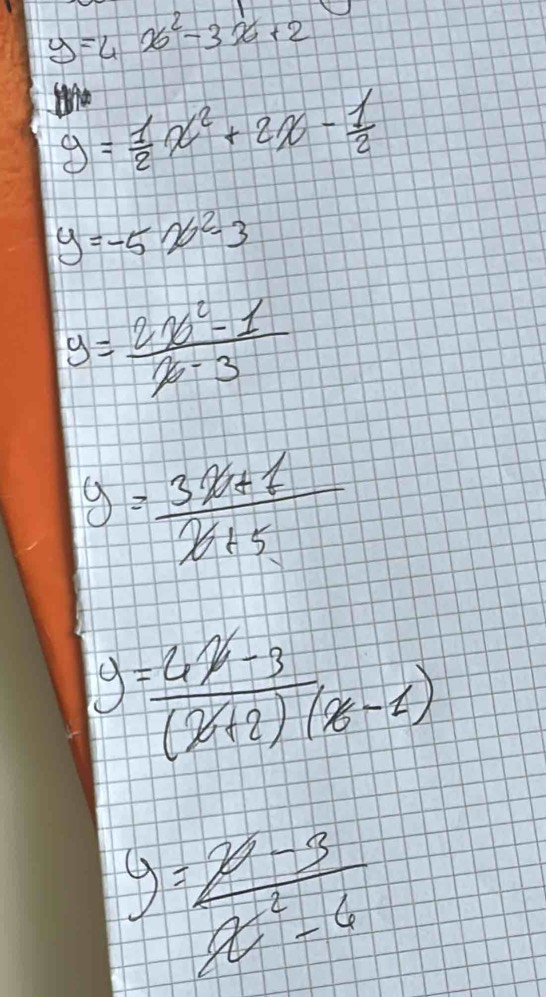 y=4x²-3x+2
y=½x²+2x-½
y=-5x²-3
y=(2x²-1)/(x-3)
y=(3x+1)/(x+5)
y=(4x-3)/((x+2)(x-1))
y=(x-3)/(x²-4)